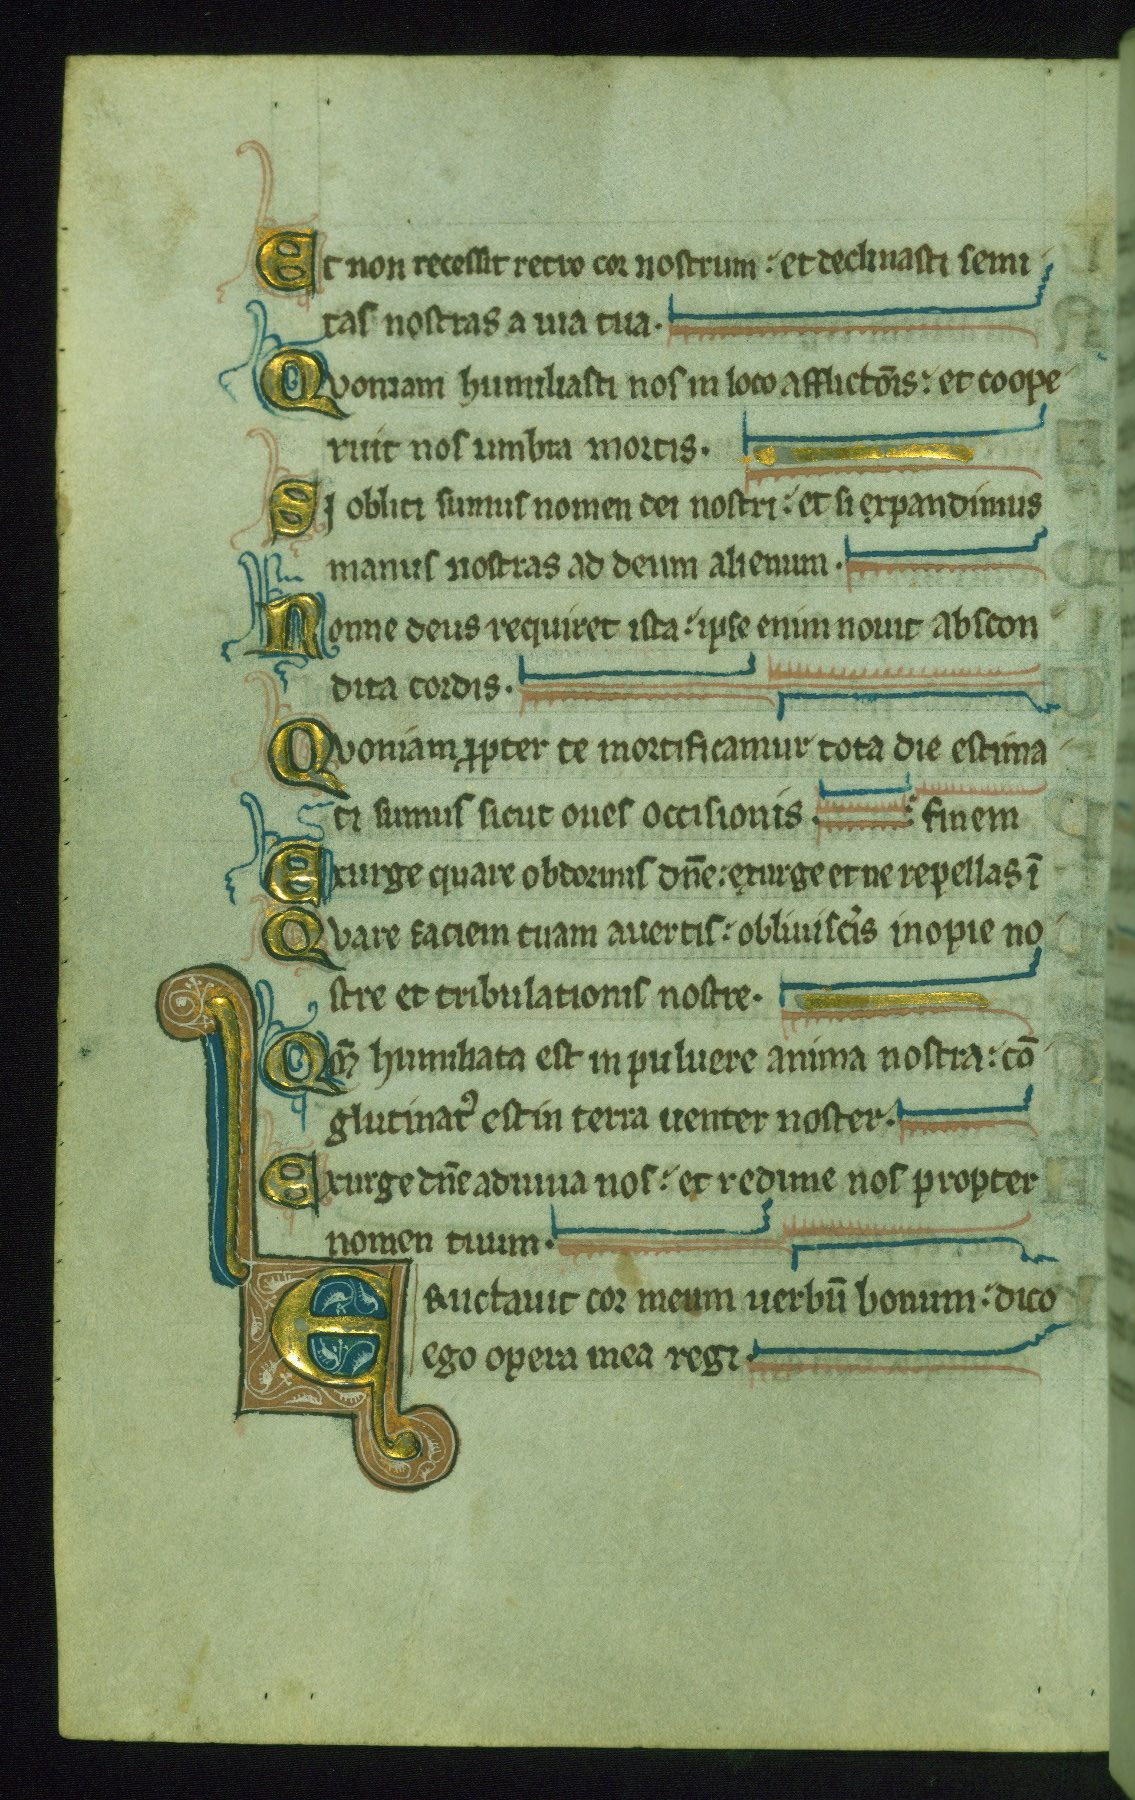 Et non recessit retro cor nostrum: et declinasti semi
tas nostras a uia tua.
Quoniam humiliasti nos in loco afflictōis: et coope
ruit nos umbra mortis.
Si obliti sumus nomen dei nostri: et si expandimus
manus nostras ad deum alienum.
Nonne deus requiret ista: ipse enim nouit abscon
dita cordis.
Quoniam ꝓpter te mortificamur tota die estima
ti sumus sicut oues occisionis. finem
Exurge quare obdormis dn̄e: exurge et ne repellas ī
Quare faciem tuam auertis: obliuisc̃is inopie no
stre et tribulationis nostre.
Qm̄ humiliata est in puluere anima nostra: cō
glutinat᷒ est in terra uenter noster.
Exurge dn̄e adiuua nos: et redime nos propter
nomen tuum.
Eructauit cor meum uerbū bonum: dico
ego opera mea regi.